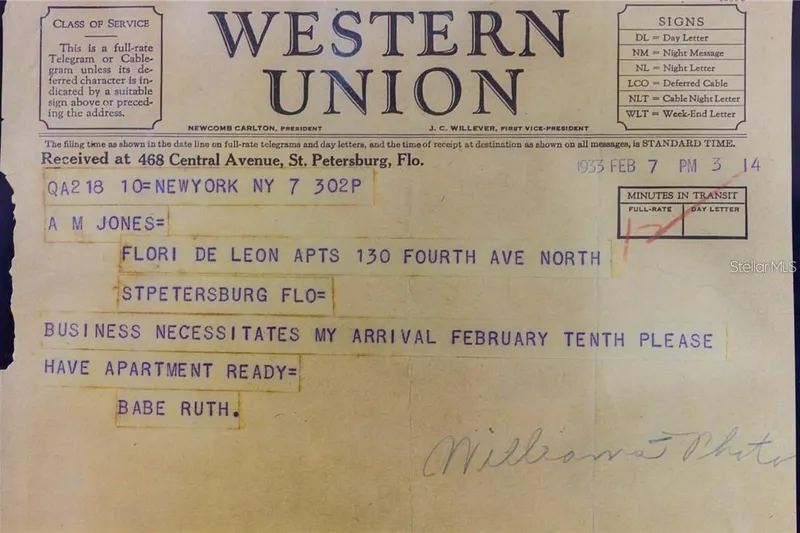 CLASS OF SERVICE
This is a full-rate
Telegram or Cable-
gram unless its de-
ferred character is in-
dicated by a suitable
sign above or preced-
ing the address.
WESTERN
UNION
NEWCOMB CARLTON, PRESIDENT
J. C. WILLEVER, FIRST VICE-PRESIDENT
SIGNS
DL = Day Letter
NM = Night Message
NL = Night Letter
LCO = Deferred Cable
NLT = Cable Night Letter
WLT = Week-End Letter
The filing time as shown in the date line on full-rate telegrams and day letters, and the time of receipt at destination as shown on all messages, is STANDARD TIME.
Received at 468 Central Avenue, St. Petersburg, Flo.
1933 FEB 7 PM 3 14
MINUTES IN TRANSIT
FULL-RATE
DAY LETTER
12
QA218 10=NEWYORK NY 7 302P
A M JONES=
FLORI DE LEON APTS 130 FOURTH AVE NORTH
STPETERSBURG FLO=
BUSINESS NECESSITATES MY ARRIVAL FEBRUARY TENTH PLEASE
HAVE APARTMENT READY=
BABE RUTH.
Williams Photo
Stellar MLS